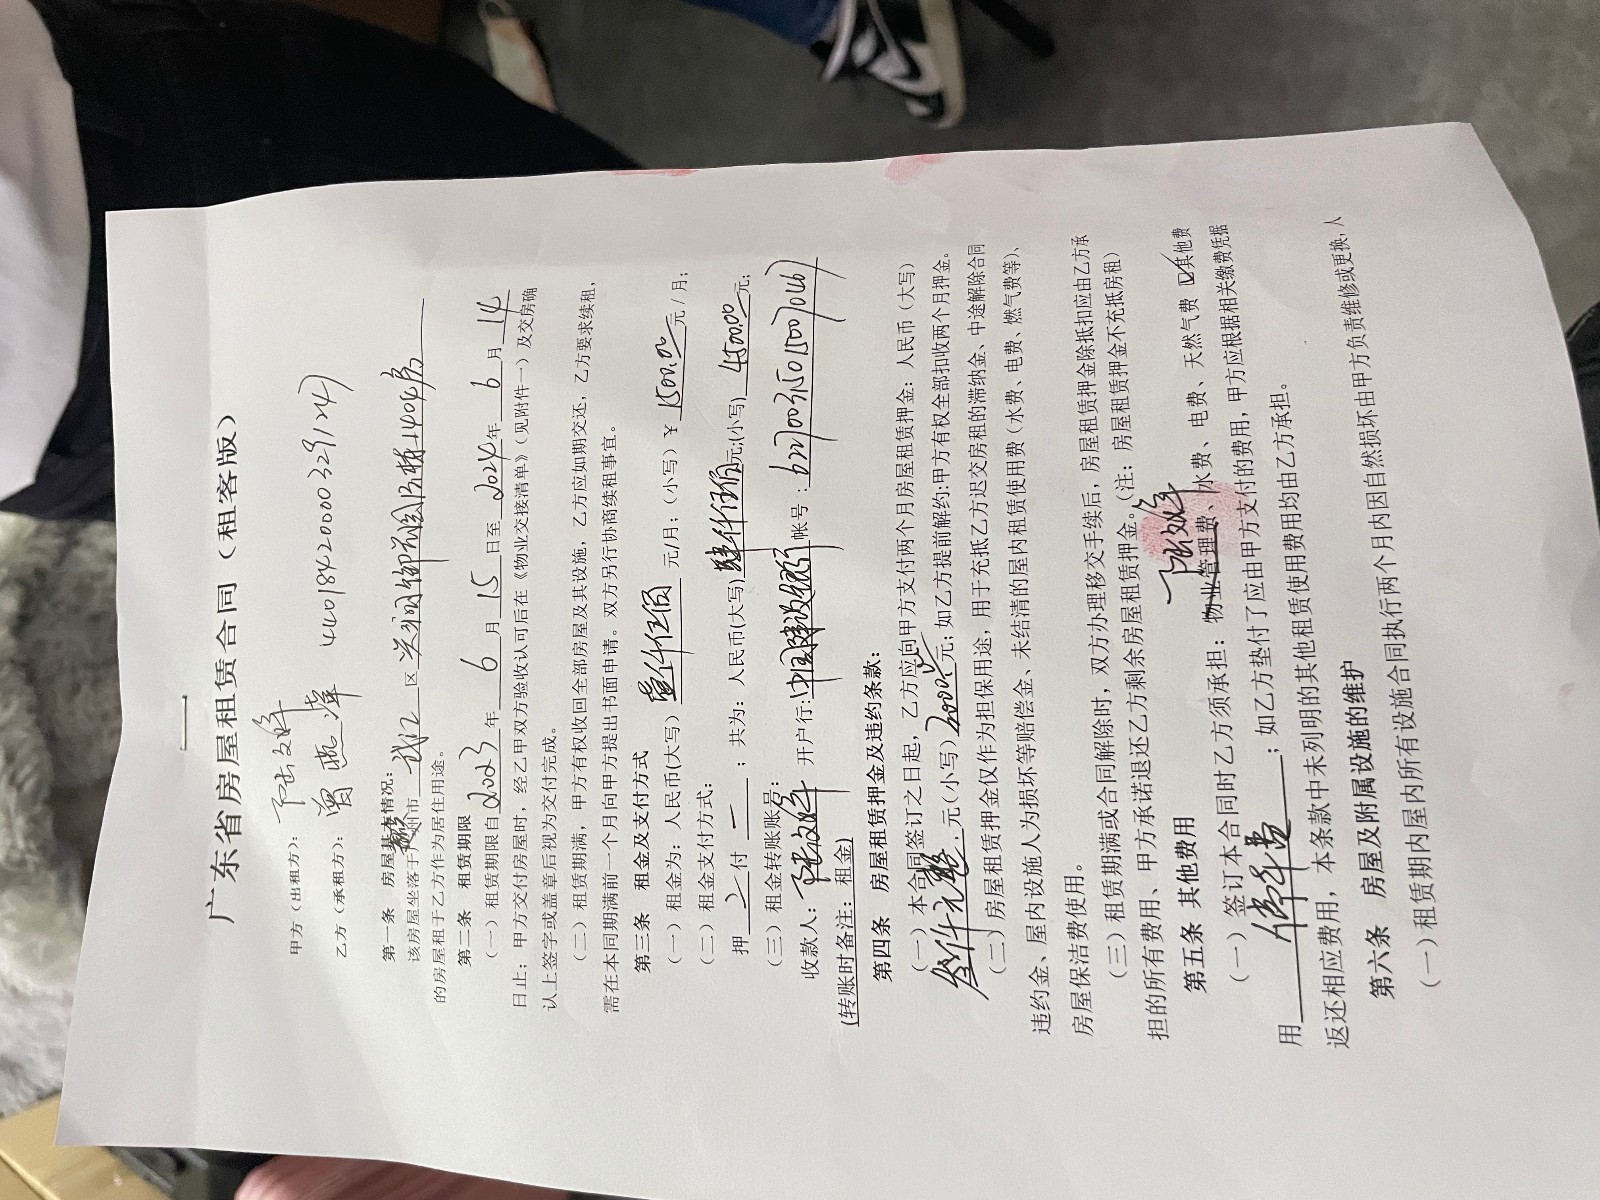 广东省房屋租赁合同（租客版）
甲方（出租方）：
乙方（承租方）：曾燕
第一条 房屋基本情况：
该房屋坐落于 州市 区 1404房
的房屋租于乙方作为居住用途。
第二条 租赁期限
（一）租赁期限自 2023 年 6 月 15 日至 2024 年 6 月 14
日止；甲方交付房屋时，经乙甲双方验收认可后在《物业交接清单》（见附件一）及交房确
认上签字或盖章后视为交付完成。
（二）租赁期满，甲方有权收回全部房屋及其设施，乙方应如期交还，乙方要求续租，
需在本同期满前一个月向甲方提出书面申请。双方另行协商续租事宜。
第三条 租金及支付方式
（一）租金为：人民币(大写) 壹仟伍佰 元/月；（小写）￥ 1500.00 元/月；
（二）租金支付方式：
押 二 付 一 ；共为：人民币(大写) 肆仟伍佰 元;(小写) 4500.00 元;
（三）租金转账账号：
收款人： 开户行: 中国建设银行 帐号：
(转账时备注：租金)
第四条 房屋租赁押金及违约条款：
（一）本合同签订之日起，乙方应向甲方支付两个月房屋租赁押金：人民币（大写）
叁仟元整 元(小写) 元；如乙方提前解约:甲方有权全部扣收两个月押金。
（二）房屋租赁押金仅作为担保用途，用于充抵乙方迟交房租的滞纳金、中途解除合同
违约金、屋内设施人为损坏等赔偿金、未结清的屋内租赁使用费（水费、电费、燃气费等）、
房屋保洁费使用。
（三）租赁期满或合同解除时，双方办理移交手续后，房屋租赁押金除抵扣应由乙方承
担的所有费用、甲方承诺退还乙方剩余房屋租赁押金。（注：房屋租赁押金不充抵房租）
第五条 其他费用
（一）签订本合同时乙方须承担：物业管理费、水费、电费、天然气费 ☑其他费
用 停车费 ；如乙方垫付了应由甲方支付的费用，甲方应根据相关缴费凭据
返还相应费用，本条款中未列明的其他租赁使用费用均由乙方承担。
第六条 房屋及附属设施的维护
（一）租赁期内屋内所有设施合同执行两个月内因自然损坏由甲方负责维修或更换，人